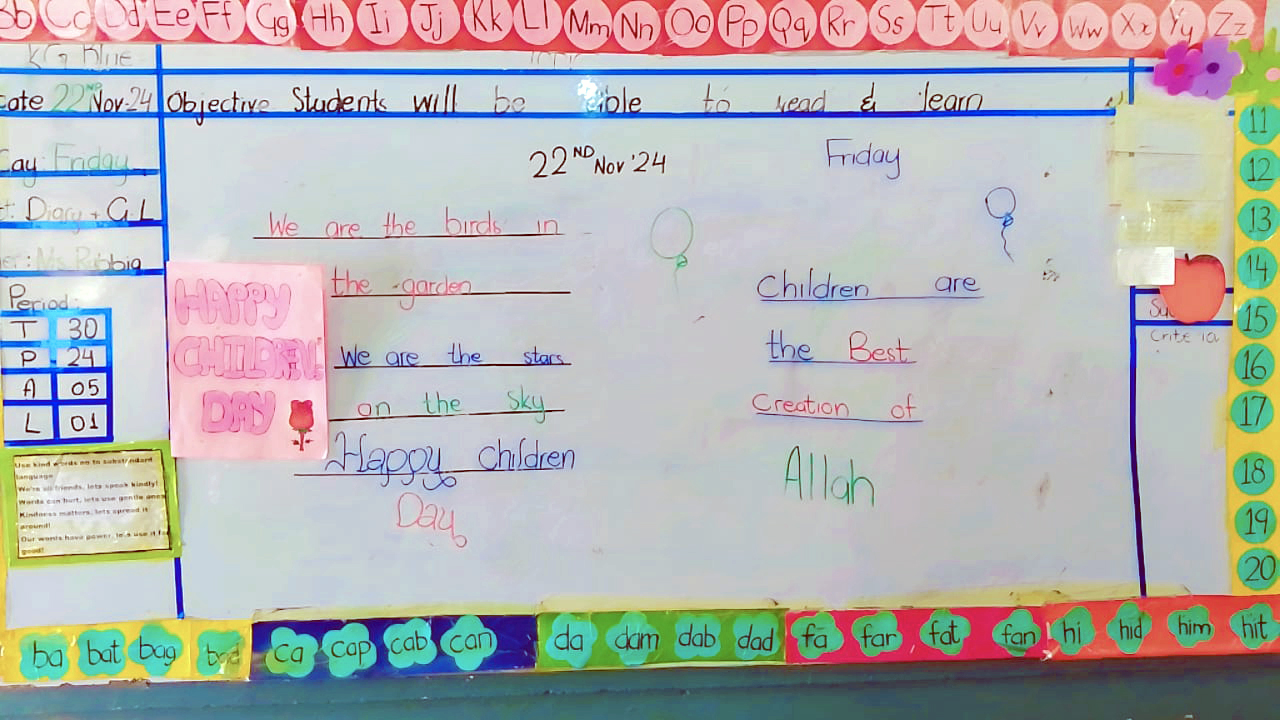 Bb Cc Dd Ee Ff Gg Hh Ii Jj Kk Ll Mm Nn Oo Pp Qq Rr Ss Tt Uu Vv Ww Xx Yy Zz
KG Blue
Topic
ate 22ND Nov-24
Objective Students will be able to read & learn
ay: Friday
22ND Nov '24 Friday
t: Diary + G.L
er: Ms. Rabbia
We are the birds in
the garden
We are the stars
on the sky
Happy children
Day
HAPPY
CHILDREN
DAY
Children are
the Best
Creation of
Allah
Period:
T 30
P 24
A 05
L 01
Use kind words no to substandard
language
We're all friends, lets speak kindly!
Words can hurt, lets use gentle ones
Kindness matters, lets spread it
around!
Our words have power, let's use it for
good!
Su
Criteria
11
12
13
14
15
16
17
18
19
20
ba bat bag bad ca cap cab can da dam dab dad fa far fat fan hi hid him hit